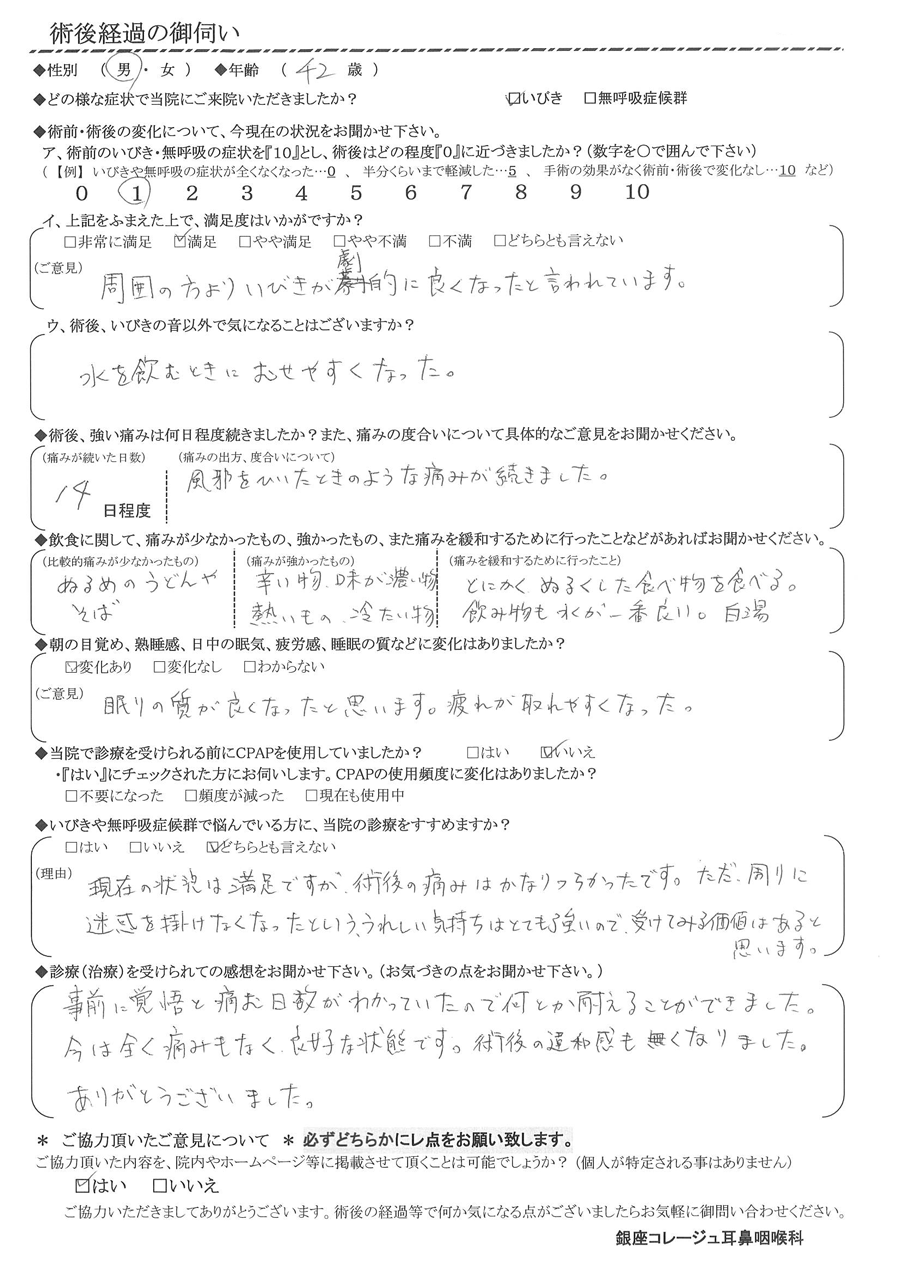 術後経過の御伺い
◆性別　（ 男 ・ 女 ）　◆年齢　（ 42 歳 ）
◆どの様な症状で当院にご来院いただきましたか？　☑いびき　□無呼吸症候群
◆術前・術後の変化について、今現在の状況をお聞かせ下さい。
ア、術前のいびき・無呼吸の症状を『10』とし、術後はどの程度『0』に近づきましたか？（数字を〇で囲んで下さい）
（ 【例】 いびきや無呼吸の症状が全くなくなった…0 、 半分くらいまで軽減した…5 、 手術の効果がなく術前・術後で変化なし…10 など）
0　1　2　3　4　5　6　7　8　9　10
イ、上記をふまえた上で、満足度はいかがですか？
□非常に満足　☑満足　□やや満足　□やや不満　□不満　□どちらとも言えない
（ご意見）
周囲の方よりいびきが劇的に良くなったと言われています。
ウ、術後、いびきの音以外で気になることはございますか？
水を飲むときに むせやすくなった。
◆術後、強い痛みは何日程度続きましたか？また、痛みの度合いについて具体的なご意見をお聞かせください。
（痛みが続いた日数）　（痛みの出方、度合いについて）
風邪をひいたときのような痛みが続きました。
14 日程度
◆飲食に関して、痛みが少なかったもの、強かったもの、また痛みを緩和するために行ったことなどがあればお聞かせください。
（比較的痛みが少なかったもの）　（痛みが強かったもの）　（痛みを緩和するために行ったこと）
ぬるめのうどんや　辛い物、味が濃い物　とにかく、ぬるくした食べ物を食べる。
そば　熱いもの、冷たい物　飲み物も水が一番良い。 白湯
◆朝の目覚め、熟睡感、日中の眠気、疲労感、睡眠の質などに変化はありましたか？
☑変化あり　□変化なし　□わからない
（ご意見）
眠りの質が良くなったと思います。疲れが取れやすくなった。
◆当院で診療を受けられる前にCPAPを使用していましたか？　□はい　☑いいえ
・『はい』にチェックされた方にお伺いします。CPAPの使用頻度に変化はありましたか？
□不要になった　□頻度が減った　□現在も使用中
◆いびきや無呼吸症候群で悩んでいる方に、当院の診療をすすめますか？
□はい　□いいえ　☑どちらとも言えない
（理由）
現在の状況は満足ですが、術後の痛みはかなりつらかったです。ただ、周りに
迷惑を掛けなくなったという、うれしい気持ちはとても強いので、受けてみる価値はあると
思います。
◆診療（治療）を受けられての感想をお聞かせ下さい。（お気づきの点をお聞かせ下さい。）
事前に覚悟と痛む日数がわかっていたので何とか耐えることができました。
今は全く痛みもなく、良好な状態です。術後の違和感も無くなりました。
ありがとうございました。
＊ ご協力頂いたご意見について ＊ 必ずどちらかにレ点をお願い致します。
ご協力頂いた内容を、院内やホームページ等に掲載させて頂くことは可能でしょうか？（個人が特定される事はありません）
☑はい　□いいえ
ご協力いただきましてありがとうございます。術後の経過等で何か気になる点がございましたらお気軽に御問い合わせください。
銀座コレージュ耳鼻咽喉科